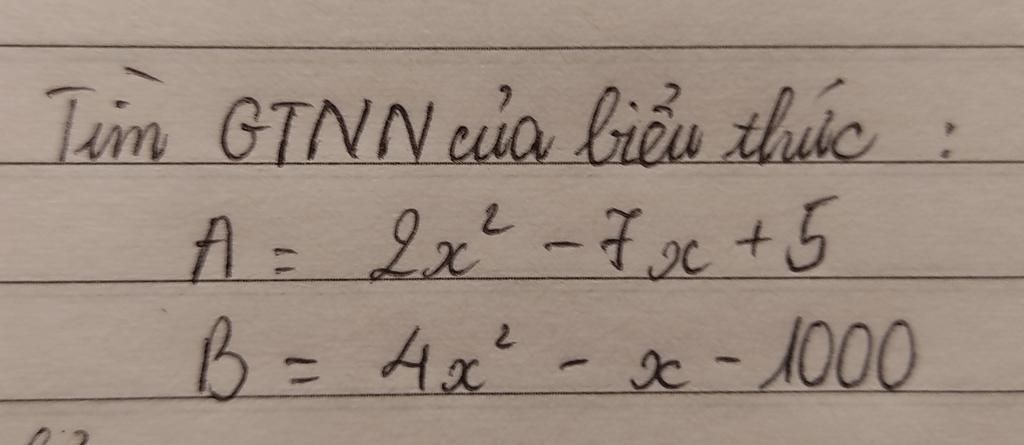 Tìm GTNN của biểu thức :
A = 2x² - 7x + 5
B = 4x² - x - 1000